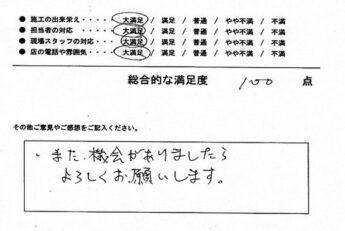 ● 施工の出来栄え・・・・ 大満足 / 満足 / 普通 / やや不満 / 不満
● 担当者の対応 ・・・・ 大満足 / 満足 / 普通 / やや不満 / 不満
● 現場スタッフの対応・・ 大満足 / 満足 / 普通 / やや不満 / 不満
● 店の電話や雰囲気・・・ 大満足 / 満足 / 普通 / やや不満 / 不満
総合的な満足度 100 点
その他ご意見やご感想をご記入ください。
・また、機会がありましたら
よろしくお願いします。